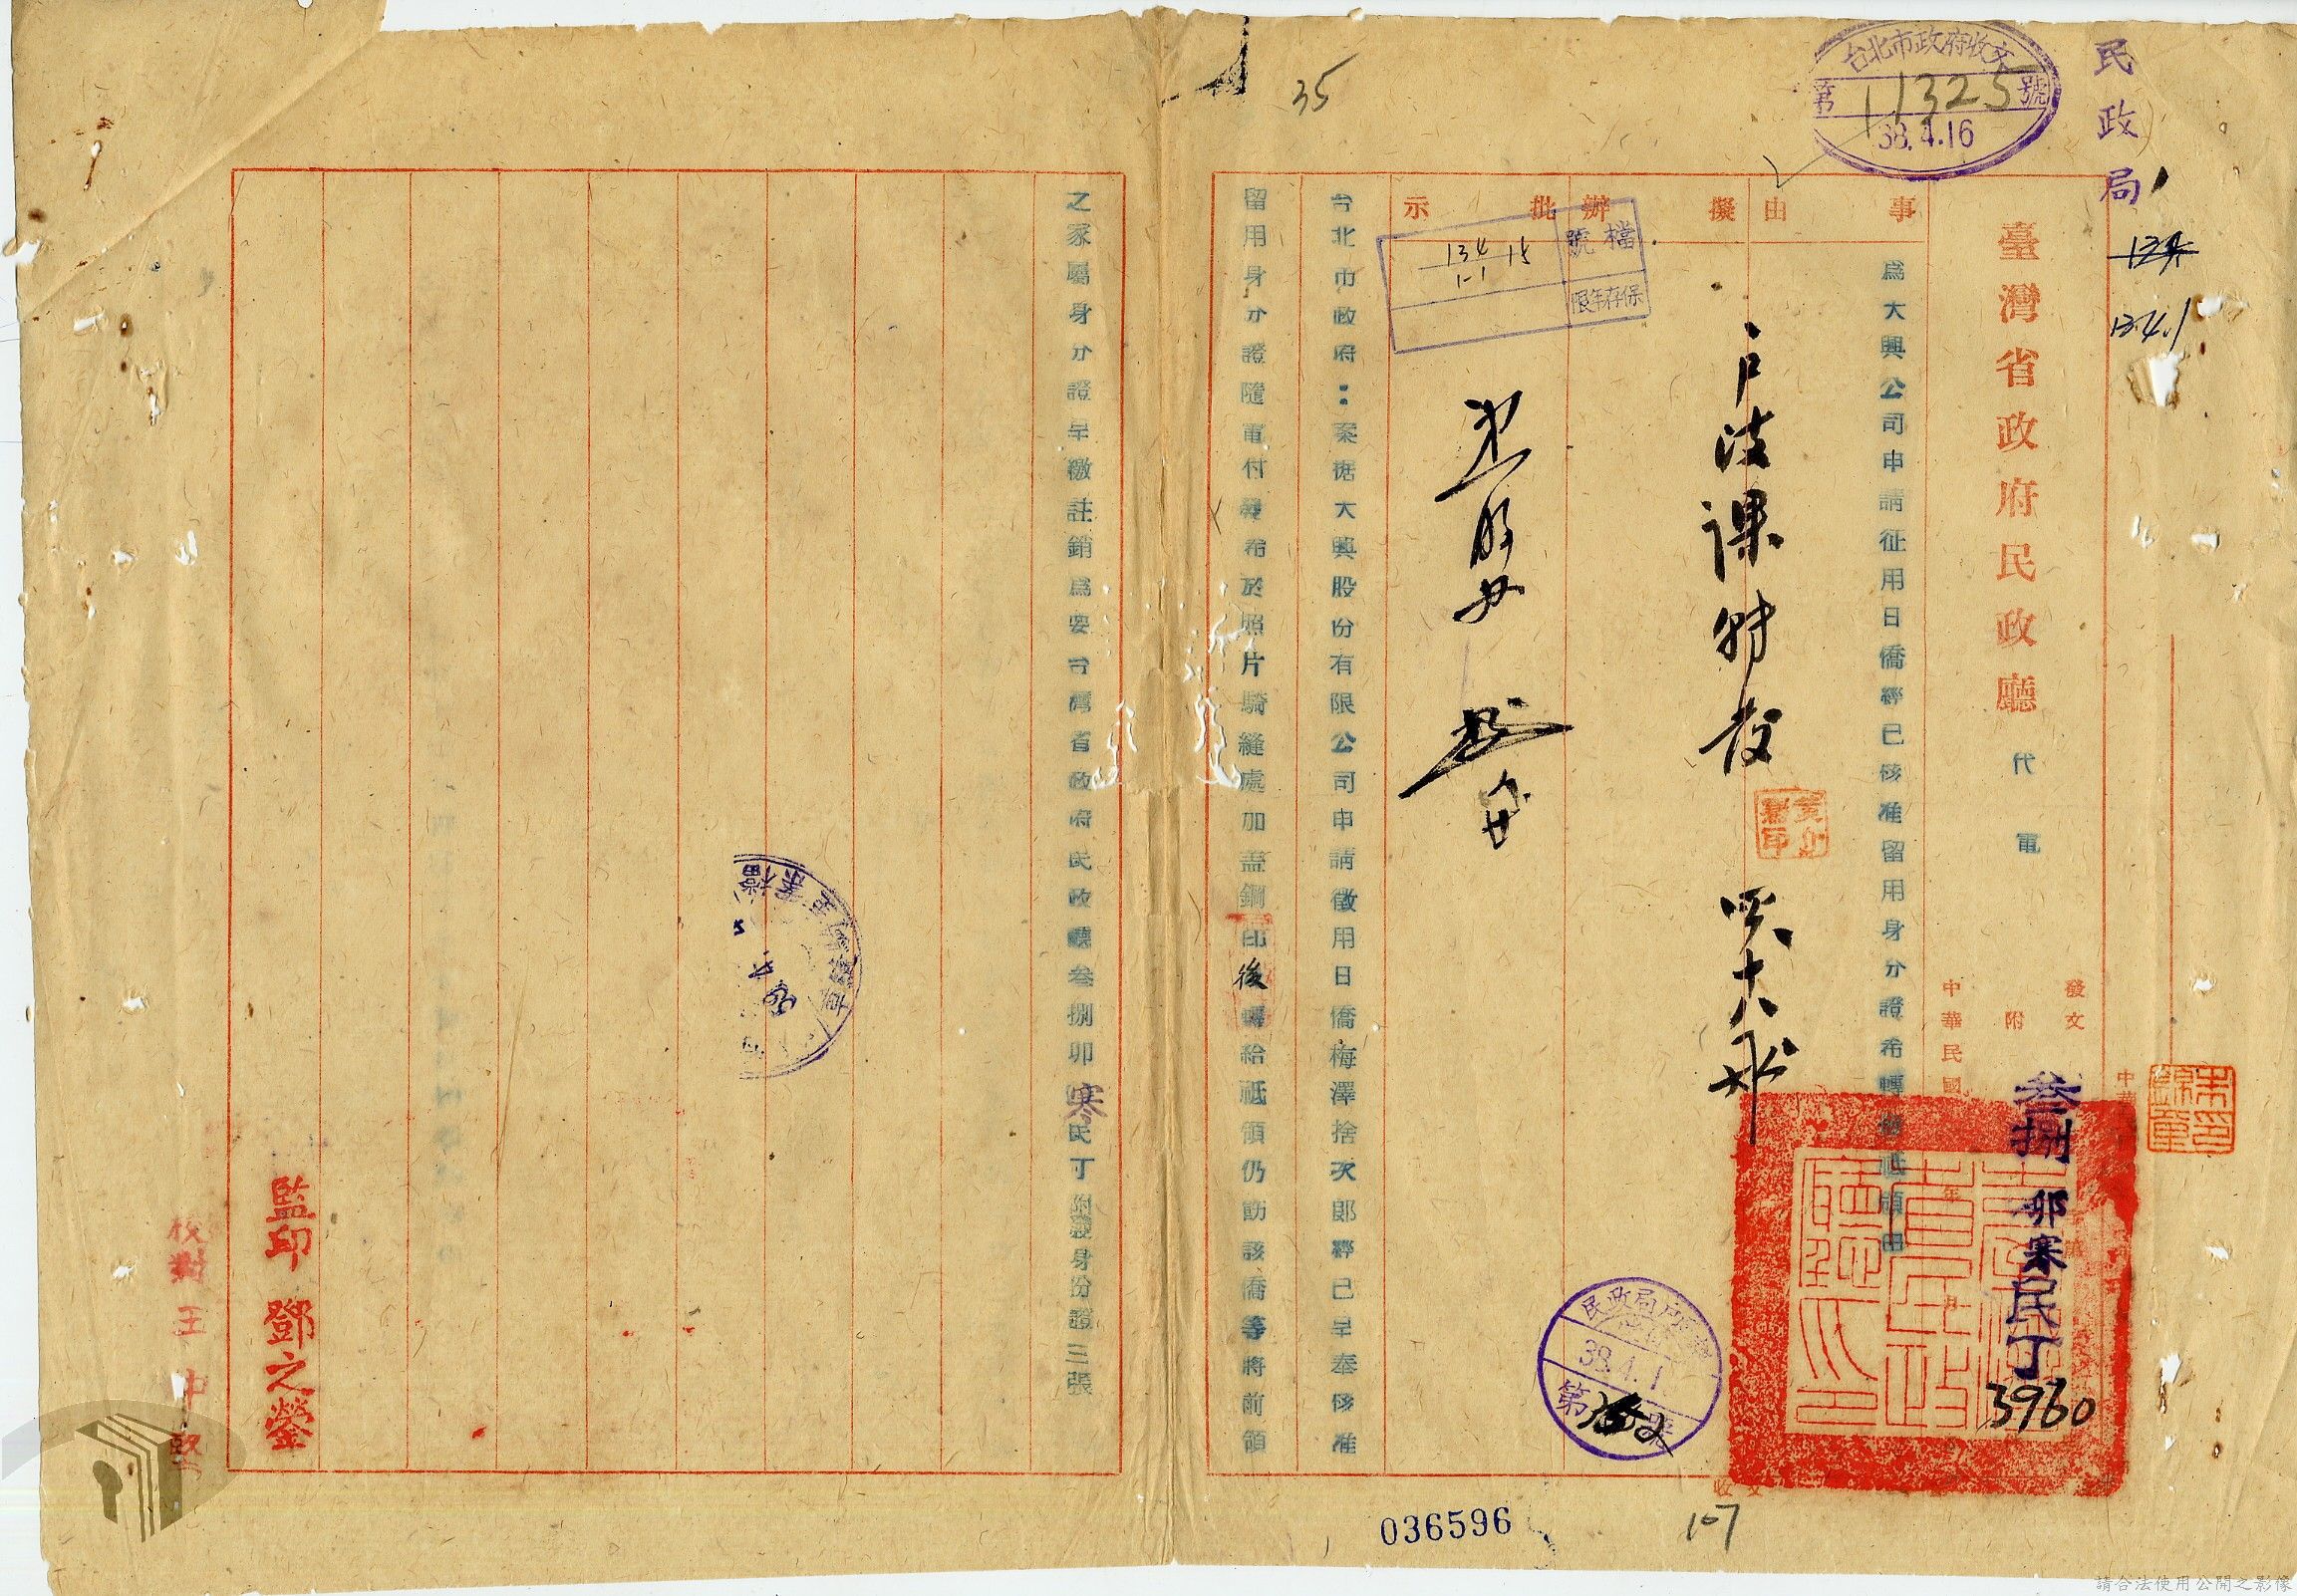 民政局
134
134.1
台北市政府收文
第11325號
38.4.16
35
臺灣省政府民政廳代電
發文
附
中華民國
叁捌卯寒民丁
3960
事由
擬辦
批示
為大興公司申請征用日僑經已核准留用身分證希轉發祗領由
檔號
134/1-1 15
保存年限
台北市政府：案据大興股份有限公司申請徵用日僑梅澤捨次郎經已呈奉核准
留用身分證隨電付發希於照片騎縫處加蓋鋼印後轉給祗領仍飭該僑等將前領
之家屬身分證呈繳註銷為要台灣省政府民政廳叁捌卯寒民丁附發身份證三張
民政局戶
38.4.1
第
號
收文
107
036596
監印 鄧之鎣
校對 王中堅
請合法使用公開之影像